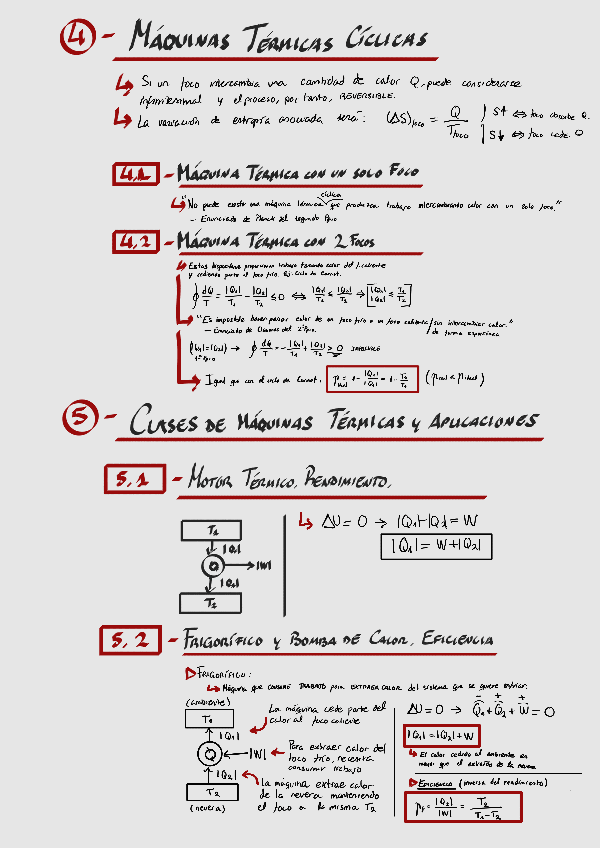 4 - MÁQUINAS TÉRMICAS CÍCLICAS
↳ Si un foco intercambia una cantidad de calor Q, puede considerarse
infinitesimal y el proceso, por tanto, REVERSIBLE.
↳ La variación de entropía asociada será: (ΔS)foco = Q / Tfoco
S↑ ⇔ foco absorbe Q.
S↓ ⇔ foco cede Q
4.1 - MÁQUINA TÉRMICA CON UN SOLO FOCO
cíclica
↳ "No puede existir una máquina térmica que produzca trabajo intercambiando calor con un solo foco."
- Enunciado de Planck del segundo Ppio
4.2 - MÁQUINA TÉRMICA CON 2 FOCOS
↳ Estos dispositivos proporcionan trabajo tomando calor del f. caliente
y cediendo parte al foco frío. Ej: Ciclo de Carnot.
∮ dQ/T = |Q1|/T1 - |Q2|/T2 ≤ 0 ⇔ |Q1|/T1 ≤ |Q2|/T2 →
↳ "Es imposible hacer pasar calor de un foco frío a un foco caliente / sin intercambiar calor."
- Enunciado de Clausius del 2º Ppio. de forma espontánea
|Q1| = |Q2| → ∮ dQ/T = -|Q1|/T1 + |Q2|/T2 > 0 IMPOSIBLE
1er Ppio
↳ Igual que con el ciclo de Carnot: = 1 - |Q2|/|Q1| = 1 - T2/T1
5 - CLASES DE MÁQUINAS TÉRMICAS Y APLICACIONES
5.1 - MOTOR TÉRMICO. RENDIMIENTO.
T1
↓ |Q1|
→ |W|
↓ |Q2|
T2
↳ ΔU = 0 → |Q1|-|Q2| = W
|Q1| = W + |Q2|
5.2 - FRIGORÍFICO Y BOMBA DE CALOR. EFICIENCIA
▷ FRIGORÍFICO:
↳ Máquina que consume TRABAJO para EXTRAER CALOR del sistema que se quiere enfriar.
(ambiente)
T1
↑ |Q1|
← |W|
↑ |Q2|
T2
(nevera)
La máquina cede parte del
calor al foco caliente
Para extraer calor del
foco frío, necesita
consumir trabajo
La máquina extrae calor
de la nevera manteniendo
el foco a la misma T2
ΔU = 0 → Q1 + Q2 + W = 0
|Q1| = |Q2| + W
↳ El calor cedido al ambiente es
mayor que el extraído de la nevera
▷ EFICIENCIA (inversa del rendimiento)
= |Q2|/|W| = T2/(T1-T2)